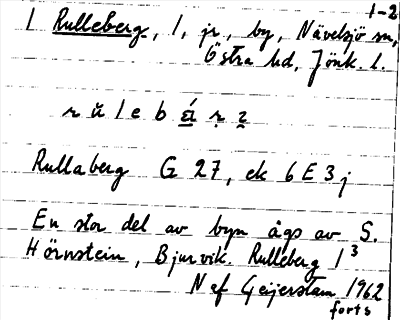 1-2
1 Rulleberg, 1, jr, by, Nävelsjö sn,
Östra hd, Jönk. l.
Rullaberg G 27, ek 6E3j
En stor del av byn ägs av S.
Hörnstein, Bjurvik. Rulleberg 1³
N af Geijerstam 1962
forts